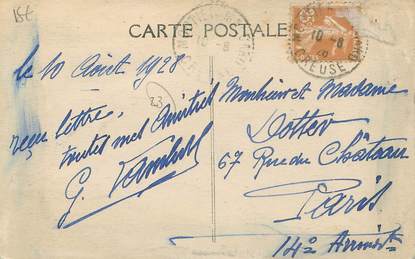 15€
CARTE POSTALE
10 - 8
CREUSE
le 10 Août 1928
23
reçu lettre,
toutes mes Amitiés
G.
Monsieur et Madame
67 Rue du Château
Paris
14e Arrondt